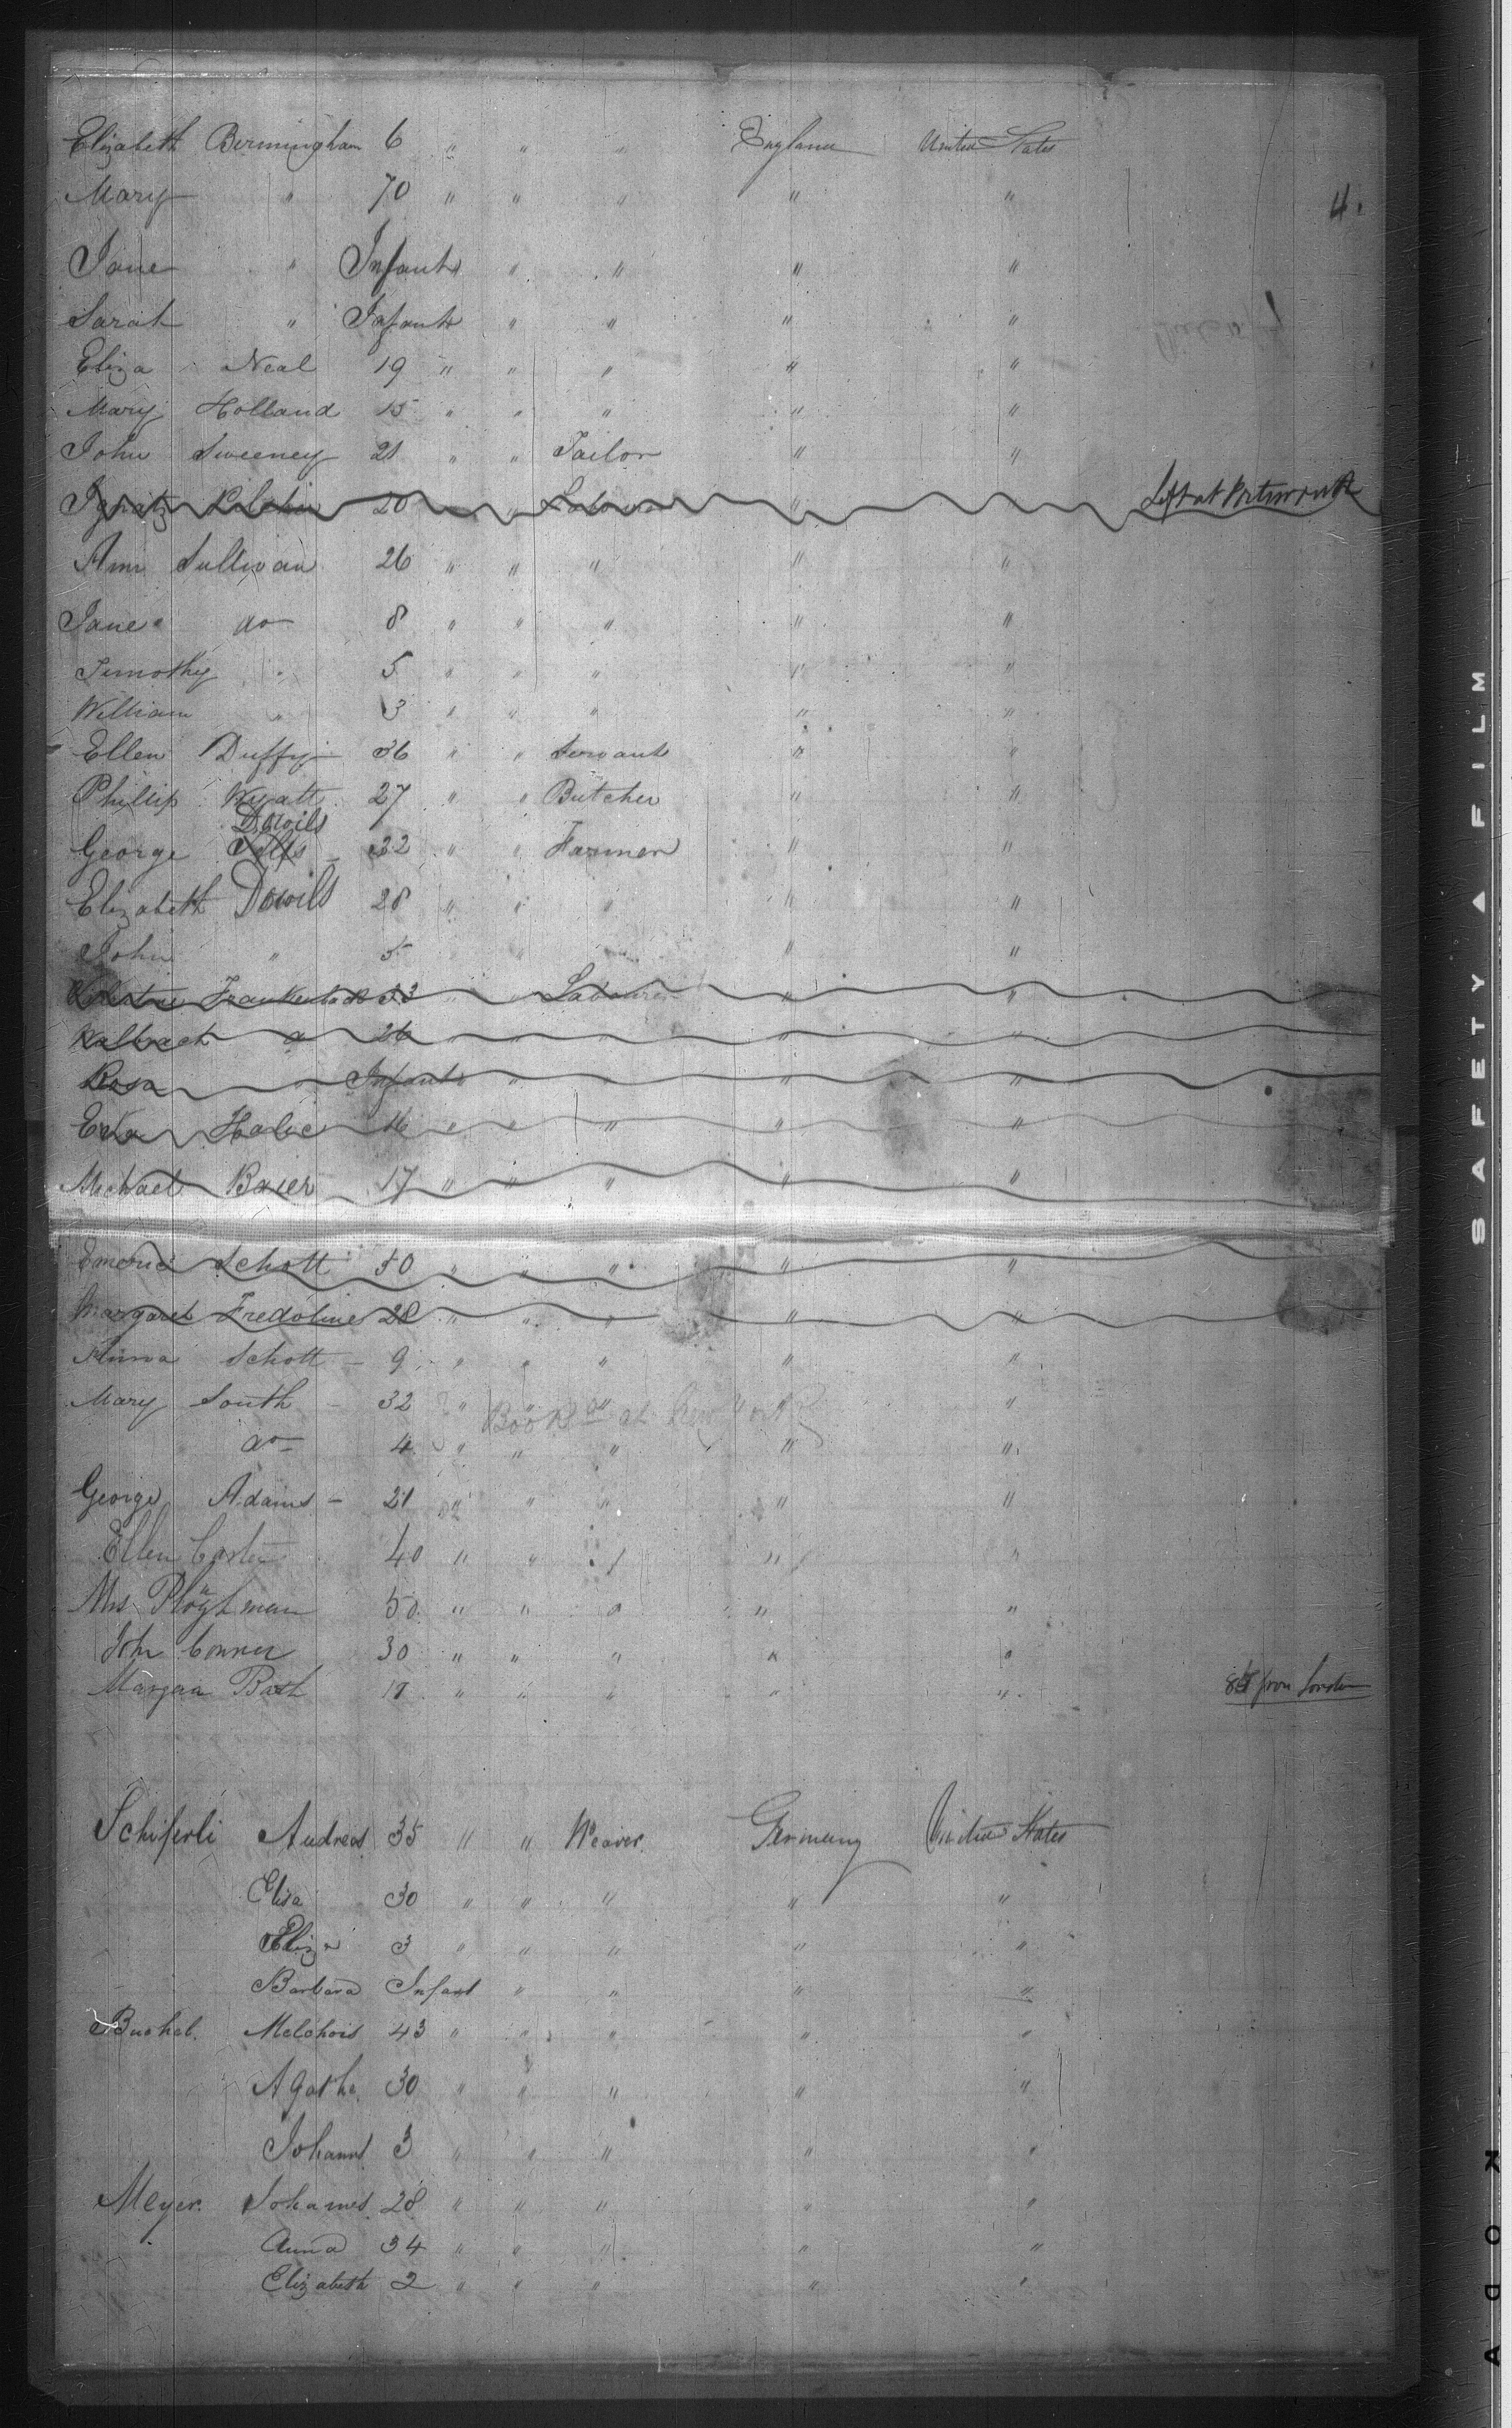 Elizabeth Bermingham 6 " " " England United States
Mary " 70 " " " " "
4.
Jane " Infant " " " " "
Sarah " Infant " " " " "
Eliza Neal 19 " " " " "
Mary Holland 15 " " " " "
John Sweeney 21 " " Tailor " "
Ignatz 20 " " Labourer " Left at Portsmouth
Ann Sullivan 26 " " " " "
Jane do 8 " " " " "
Timothy " 5 " " " " "
William " 3 " " " " "
Ellen Duffy 36 " " Servant " "
Phillip Wyatt 27 " " Butcher " "
Dowils
George 32 " " Farmer " "
Elizabeth Dowils 28 " " " " "
John " 5 " " " " "
Frankenback 33 " " Labourer " "
26 " " " " "
Rosa " Infant " " " " "
16 " " " " "
Michael Baier 17 " " " " "
Schott 50 " " " " "
Margaret Fredoline 28 " " " " "
Schott 9 " " " " "
Mary South 32 " " " " "
Bookd at New York
do 4 " " " " "
George Adams 21 " " " " "
Ellen 40 " " " " "
Mrs 50 " " " " "
John Conner 30 " " " " "
Bath " " " " " from London
Schiferli Andreas 35 " " Weaver Germany United States
Elisa 30 " " " " "
Eliza 3 " " " " "
Barbara Infant " " " "
Melchois 43 " " " " "
Agatha 30 " " " " "
Johannes 3 " " " " "
Meyer. Johannes 28 " " " " "
Anna 34 " " " " "
Elizabeth 2 " " " " "
SAFETY FILM
KODA